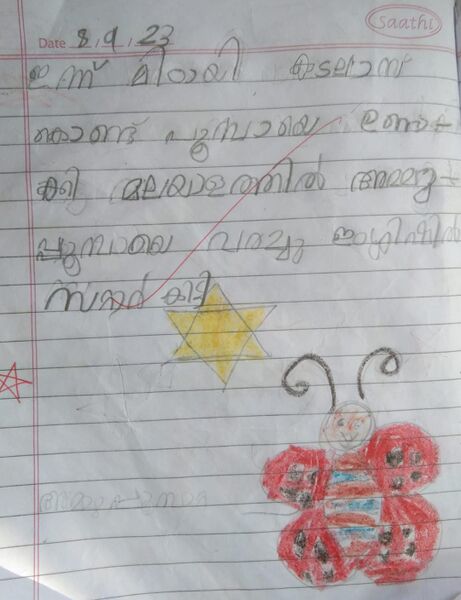 Saathi
Date 8.9.23
ഇന്ന് മിഠായി കടലാസ്
കൊണ്ട് പൂമ്പാറ്റയെ ഉണ്ടാ
ക്കി മലയാളത്തിൽ
പൂമ്പാറ്റയെ വരച്ചു ഇംഗ്ലീഷിൽ
സ്റ്റാർ കിട്ടി